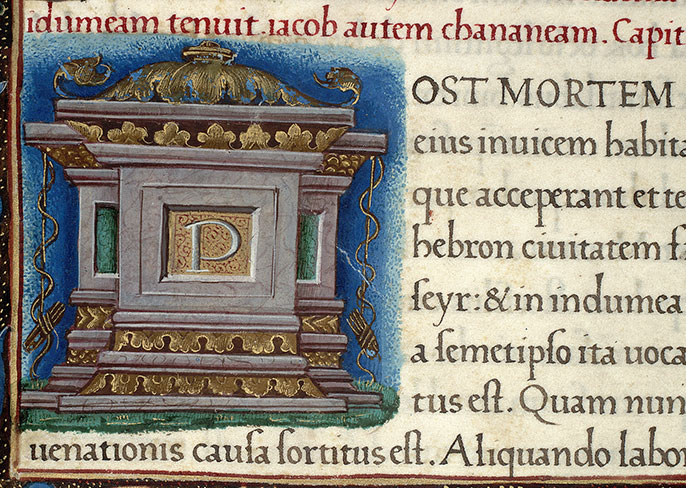 idumeam tenuit. iacob autem chananeam. Capit
P
OST MORTEM
eius inuicem habita
que acceperant et te
hebron ciuitatem fa
seyr: & in indumea
a semetipso ita uoca
tus est. Quam nun
uenationis causa sortitus est. Aliquando labor